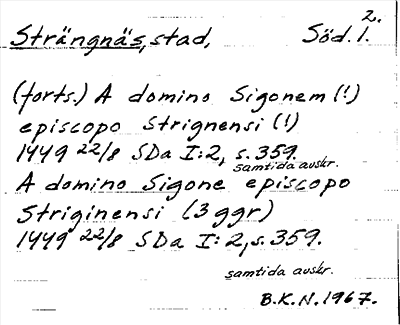 2.
Strängnäs, stad, Söd. 1.
(forts.) A domino Sigonem (!)
episcopo Strignensi (!)
1449 22/8 SDa I:2, s. 359.
samtida avskr.
A domino Sigone episcopo
Striginensi (3 ggr)
1449 22/8 SDa I:2, s. 359.
samtida avskr.
B.K.N. 1967.